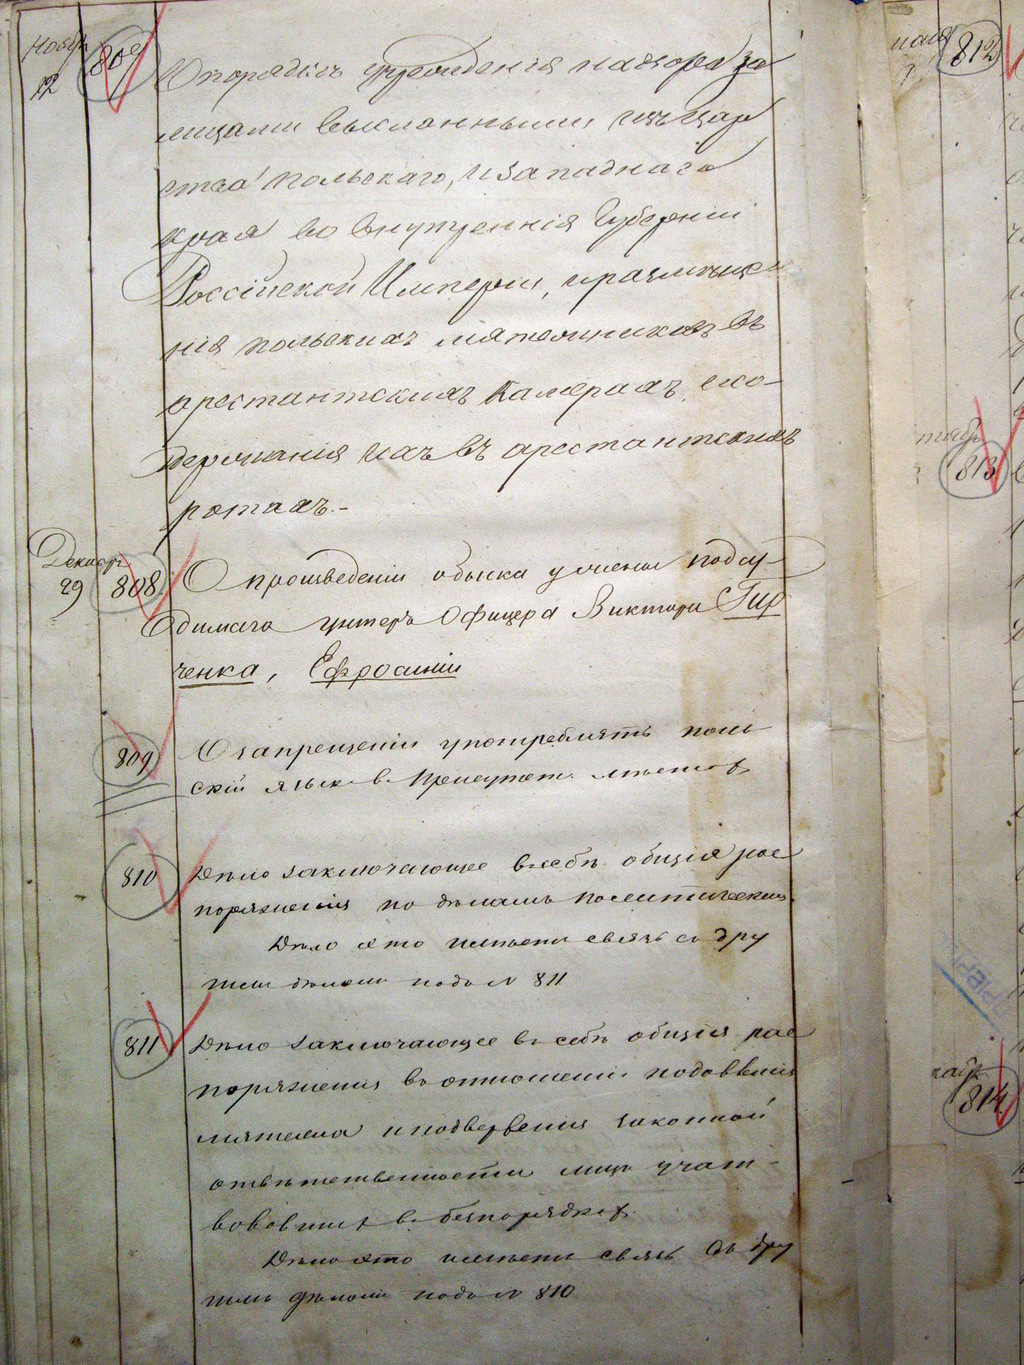 Ноябр
12
807
О порядкѣ учрежденія надзора за
лицами высланными изъ Цар
ства Польскаго, и Западнаго
края во внутреннія Губерніи
Россійской Имперіи, и размѣще
нія польскихъ мятежниковъ въ
арестантскихъ камерахъ, и со-
держанія ихъ въ арестантскихъ
ротахъ.-
Декабр
29
808
О произведеніи обыска у жены подсу-
димаго унтеръ Офицера Виктора Гир
ченка, Ефросиніи
809
О запрещеніи употреблять поль
скій языкъ в. Присутст. мѣстах
810
Дѣло заключающее в себѣ общія рас
поряженія по дѣламъ политическим
Дѣло это имѣетъ связь съ дру
гимъ дѣломъ подъ № 811
811
Дѣло заключающее въ себѣ общія рас
поряженія въ отношеніи подавленія
мятежа и подверженія законной
отвѣтственности лицъ участ-
вовавших в. безпорядках.
Дѣло это имѣетъ связь съ дру
гимъ дѣломъ подъ № 810
812
813
814